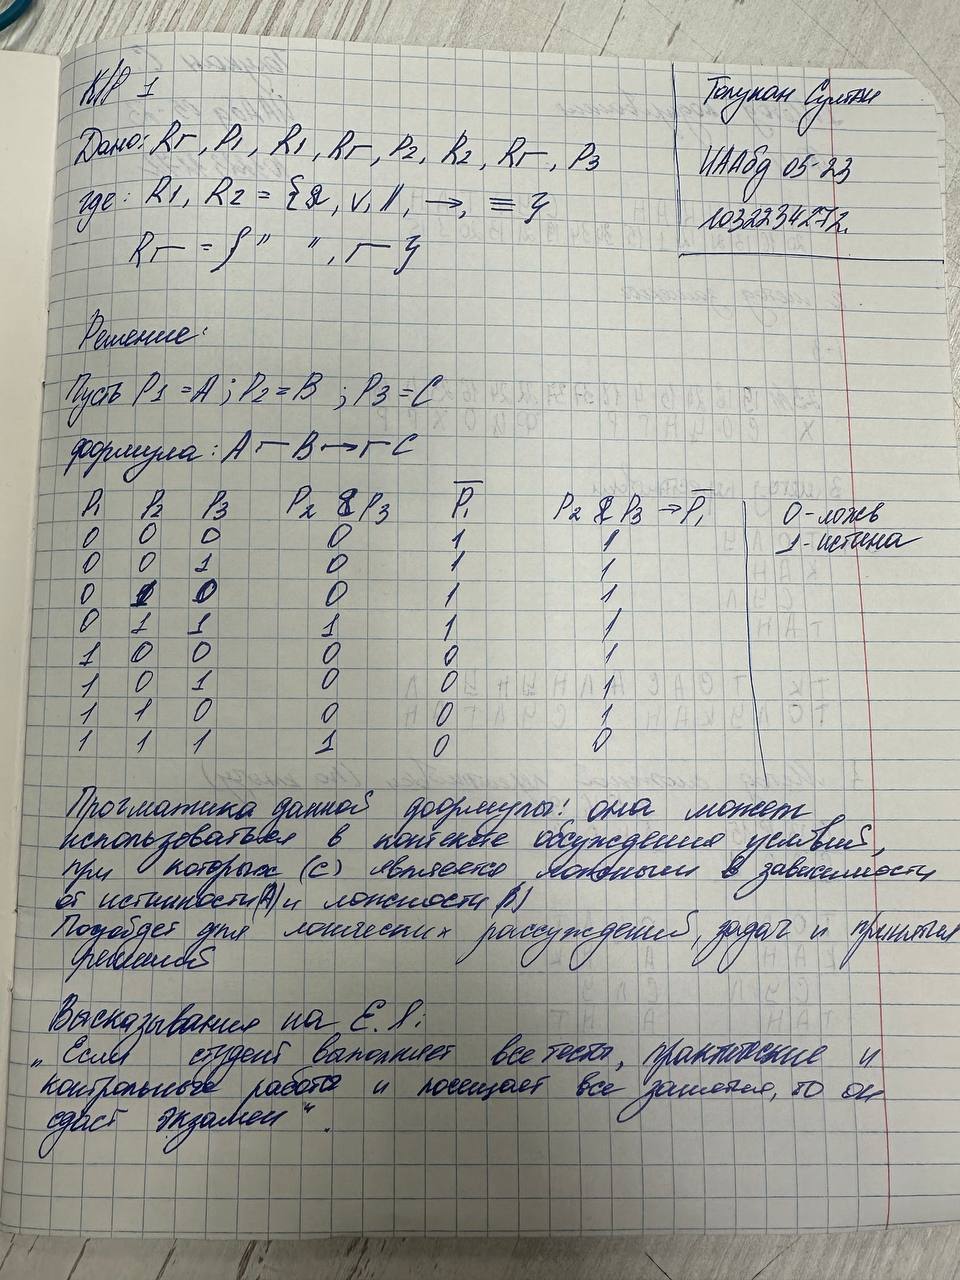 К/Р 1
Толукан Султан
ИААбд 05-23
1032234272.
Дано: Rг, P1, R1, Rг, P2, R2, Rг, P3
где: R1, R2 = {&, v, ||, →, ≡ }
Rг = { " ", г }
Решение:
Пусть P1 = A ; P2 = B ; P3 = C
формула: A г B → г C
P1 P2 P3 P2 & P3 P̅1 P2 & P3 → P̅1
0 0 0 0 1 1
0 0 1 0 1 1
0 1 0 0 1 1
0 1 1 1 1 1
1 0 0 0 0 1
1 0 1 0 0 1
1 1 0 0 0 1
1 1 1 1 0 0
0-ложь
1-истина
Прогматика данной формулы: она может
использоваться в контексте обсуждения условий,
при которых (C) является ложным в зависимости
от истинности(A) и ложности (B)
Подойдет для логических рассуждений, задач и принятия
решений
Высказывания на Е.Я:
„Если студент выполняет все тесты, практические и
контрольные работы и посещает все занятия, то он
сдаст экзамен".